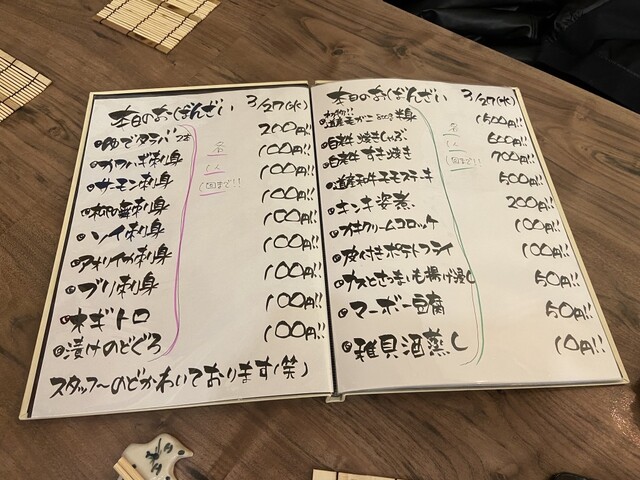 本日のおばんざい 3/27(水)
ゆでタラバ 2本 200円!!
カワハギ刺身 100円!!
サーモン刺身 100円!!
刺身 100円!!
ソイ刺身 100円!!
アオリイカ刺身 100円!!
ブリ刺身 100円!!
ネギトロ 100円!!
漬けのどぐろ 100円!!
名
1人
1回まで!!
スタッフ〜のどかわいております(笑)
本日のおばんざい 3/27(水)
半身 1500円!!
焼きしゃぶ 600円!!
すき焼き 700円!!
道産和牛モモステーキ 500円!!
キンキ姿蒸 200円!!
カキクリームコロッケ 100円!!
皮付きポテトフライ 100円!!
ナスとさつまいも揚げ浸し 50円!!
マーボー豆腐 50円!!
稚貝酒蒸し 10円!!
名
1人
1回まで!!